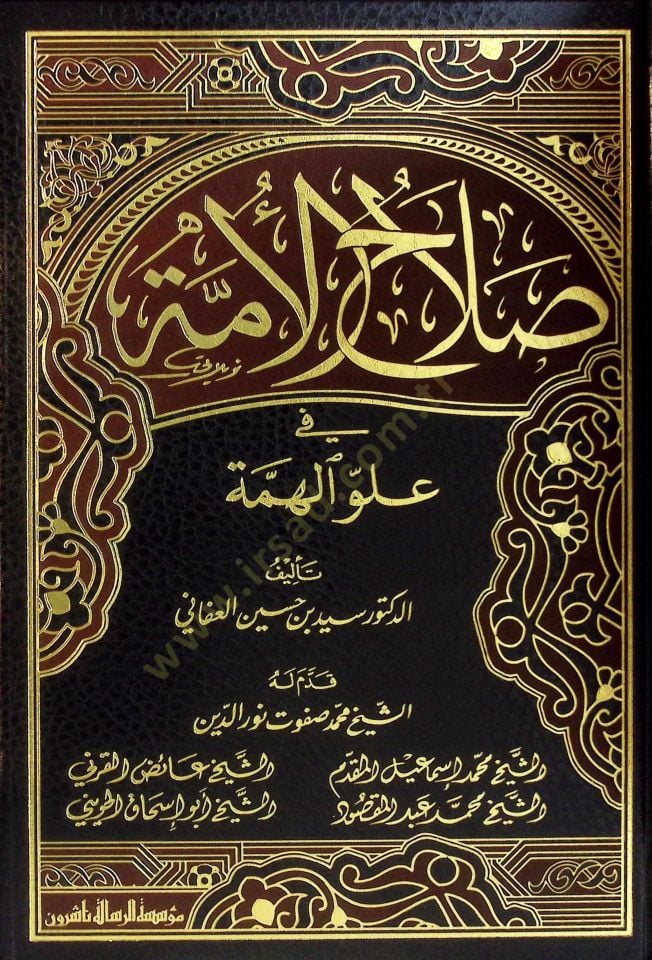 صلاح الأمة
في
علو الهمة
تأليف
الدكتور سيد بن حسين العفاني
قدم له
الشيخ محمد صفوت نور الدين
الشيخ محمد إسماعيل المقدم الشيخ عائض القرني
الشيخ محمد عبد المقصود الشيخ أبو إسحاق الحويني
مؤسسة الرسالة ناشرون
www.irsad.com.tr